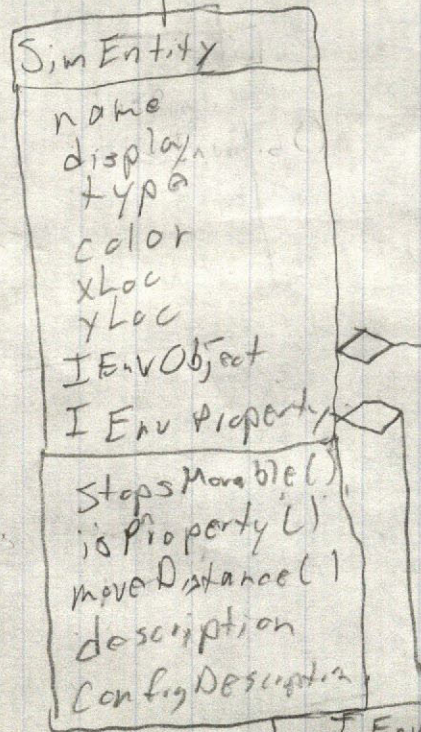 SimEntity
name
display
type
color
xLoc
yLoc
IEnvObject
I Env Property
stopsMovable()
isProperty()
moveDistance()
description
ConfigDescription
I Env